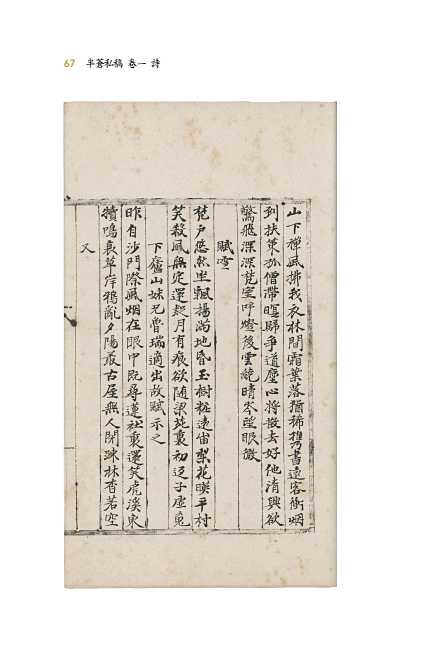 67 半蒼私稿 卷一 詩
山下禪風拂我衣林間霜葉落猶稀携書遠客衝烟
到扶策孤僧帶暝歸爭道塵心將散去好他清興欲
驚飛深深梵室呼燈後雲純晴岑望眼微
賦雪
梵戶悠然坐飄揚滿地昏玉樹粧遠宙梨花暎平村
笑殺風無定還疑月有痕欲隨梁苑裏初逕子虛兎
下廬山妹兄曾瑞適出故賦示之
昨自沙門際風烟在眼中旣尋蓮社裏還笑虎溪東
犢鳴衰草岸鴉亂夕陽菽古屋無人閉疎林杳若空
又